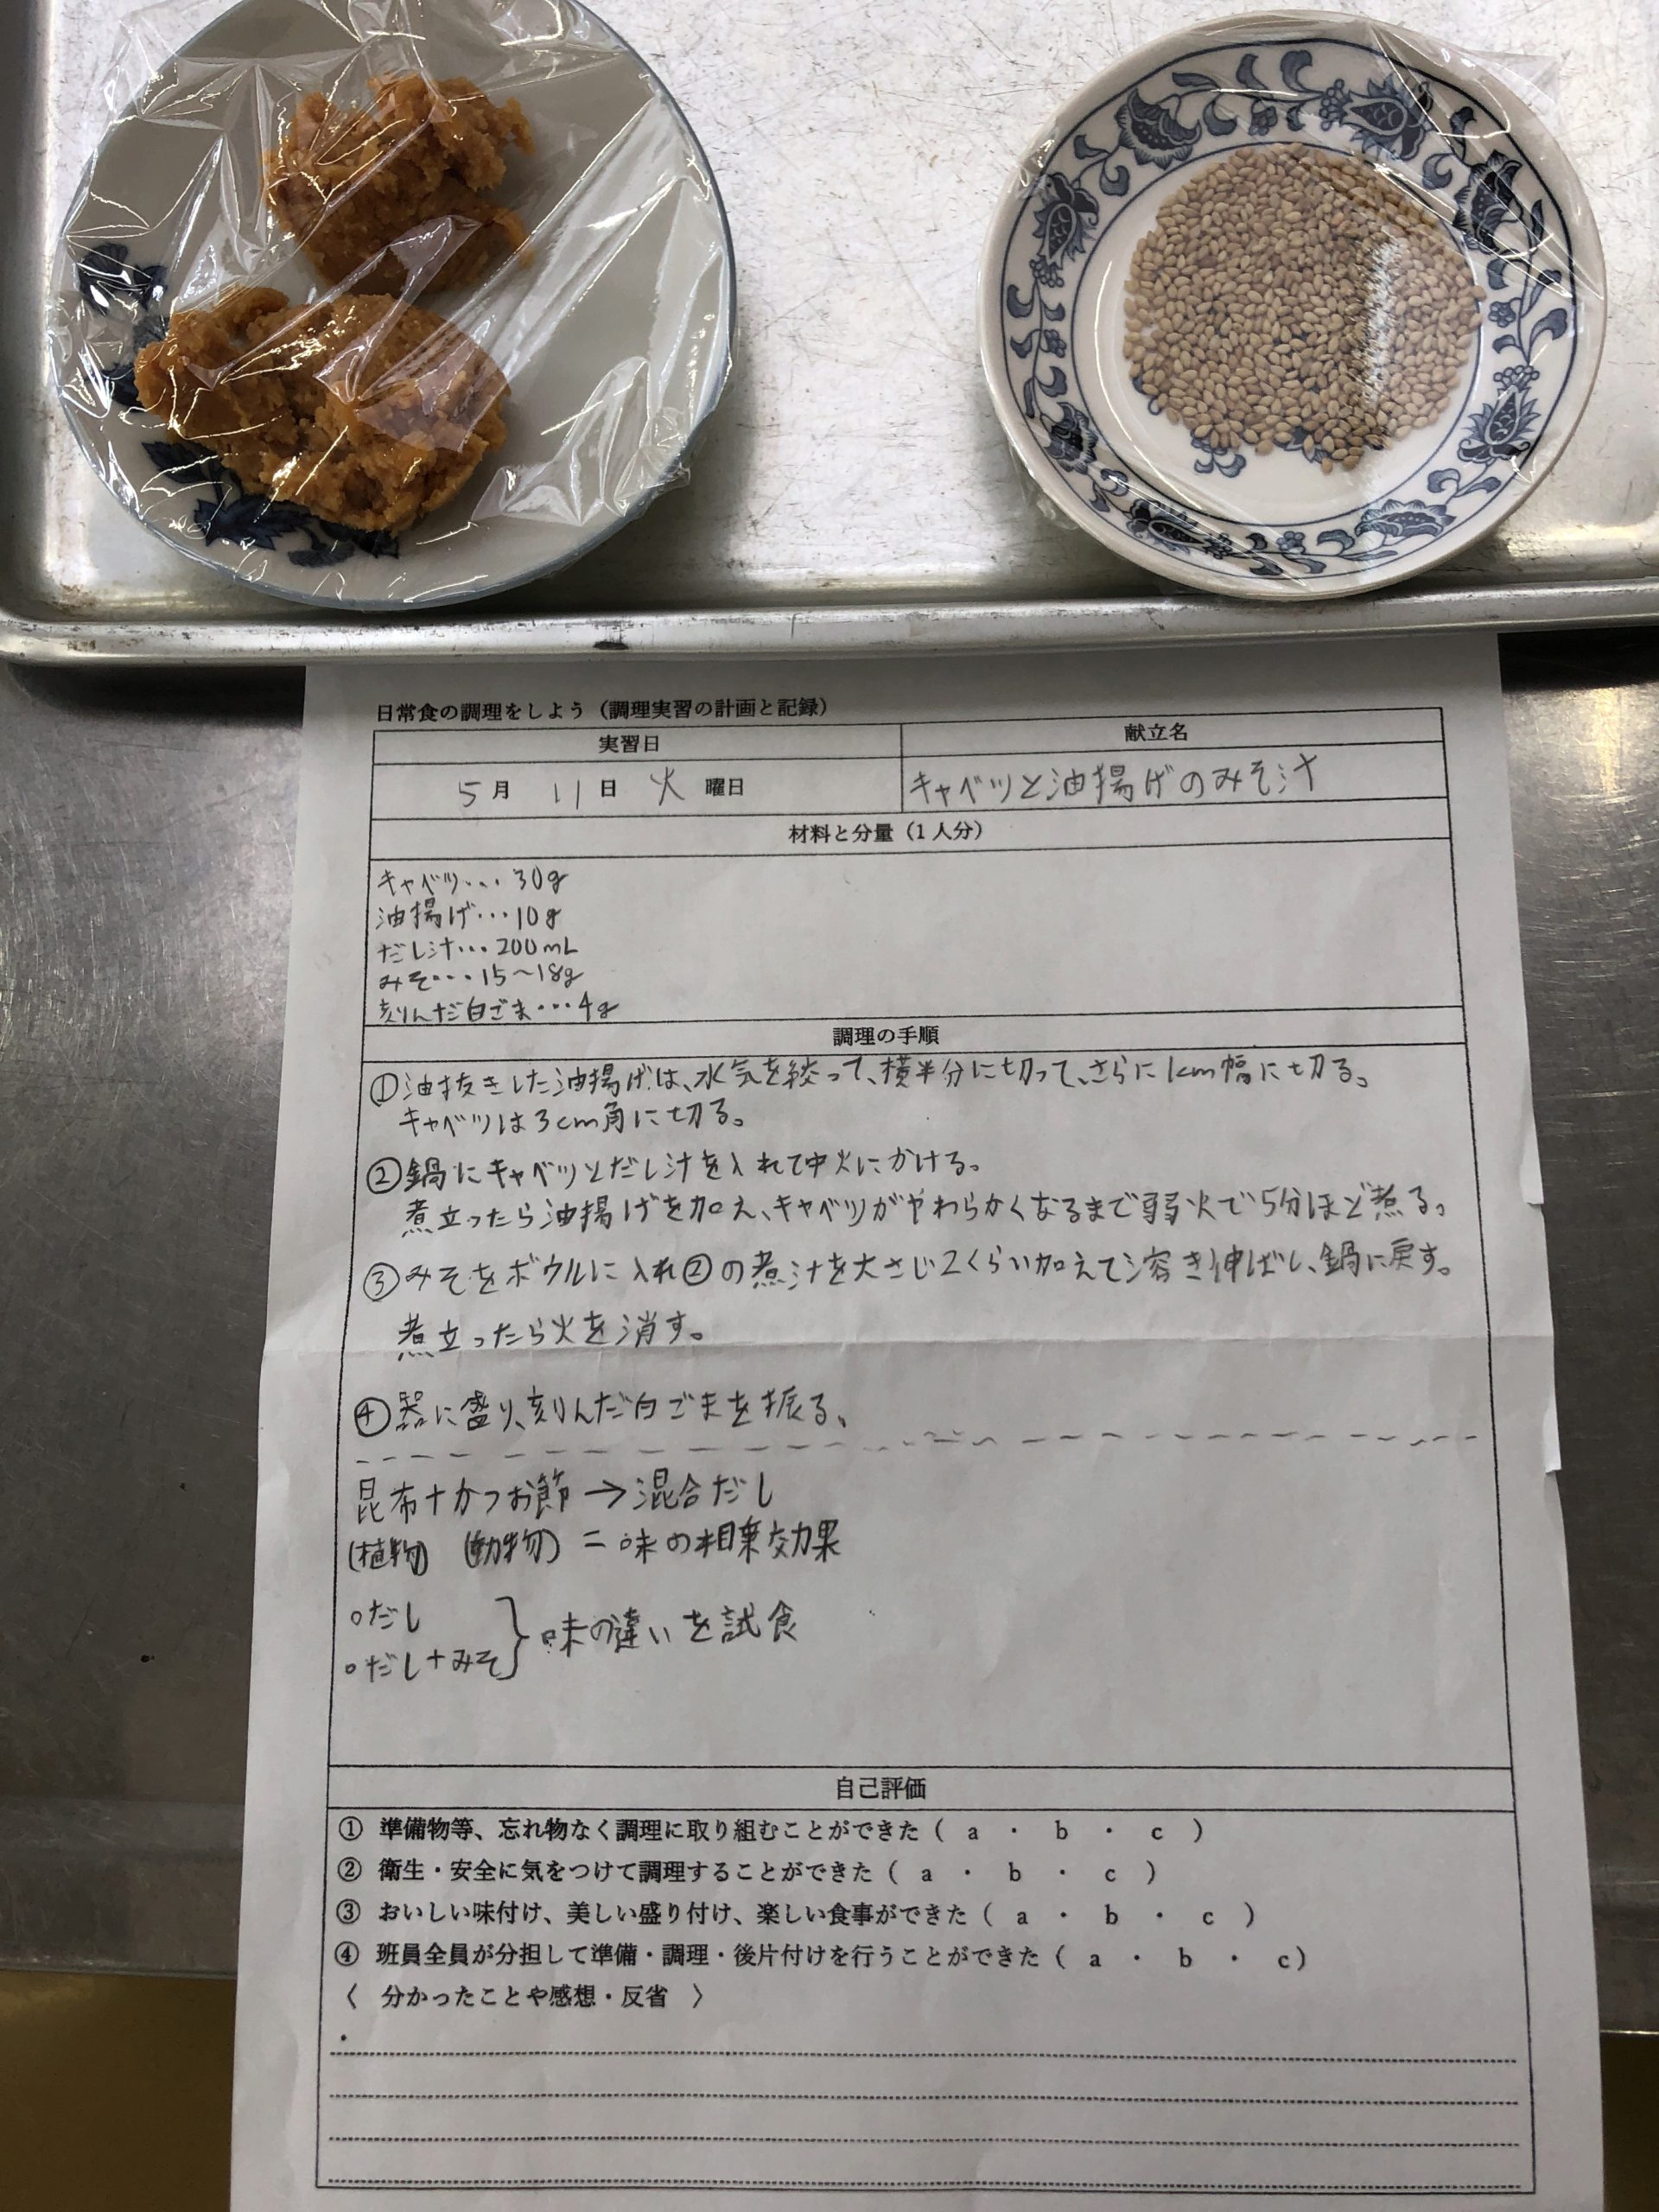 日常食の調理をしよう（調理実習の計画と記録）
実習日
献立名
5月 11日 火 曜日
キャベツと油揚げのみそ汁
材料と分量（1人分）
キャベツ･･･30g
油揚げ･･･10g
だし汁･･･200mL
みそ･･･15～18g
刻んだ白ごま･･･4g
調理の手順
①油抜きした油揚げは、水気を絞って、横半分に切って、さらに1cm幅に切る。
キャベツは3cm角に切る。
②鍋にキャベツとだし汁を入れて中火にかける。
煮立ったら油揚げを加え、キャベツがやわらかくなるまで弱火で5分ほど煮る。
③みそをボウルに入れ②の煮汁を大さじ2くらい加えて溶き伸ばし、鍋に戻す。
煮立ったら火を消す。
④器に盛り、刻んだ白ごまを振る、
昆布+かつお節→混合だし
(植物) (動物) =味の相乗効果
○だし
○だし+みそ } 味の違いを試食
自己評価
① 準備物等、忘れ物なく調理に取り組むことができた（ a ・ b ・ c ）
② 衛生・安全に気をつけて調理することができた（ a ・ b ・ c ）
③ おいしい味付け、美しい盛り付け、楽しい食事ができた（ a ・ b ・ c ）
④ 班員全員が分担して準備・調理・後片付けを行うことができた（ a ・ b ・ c）
〈 分かったことや感想・反省 〉
・